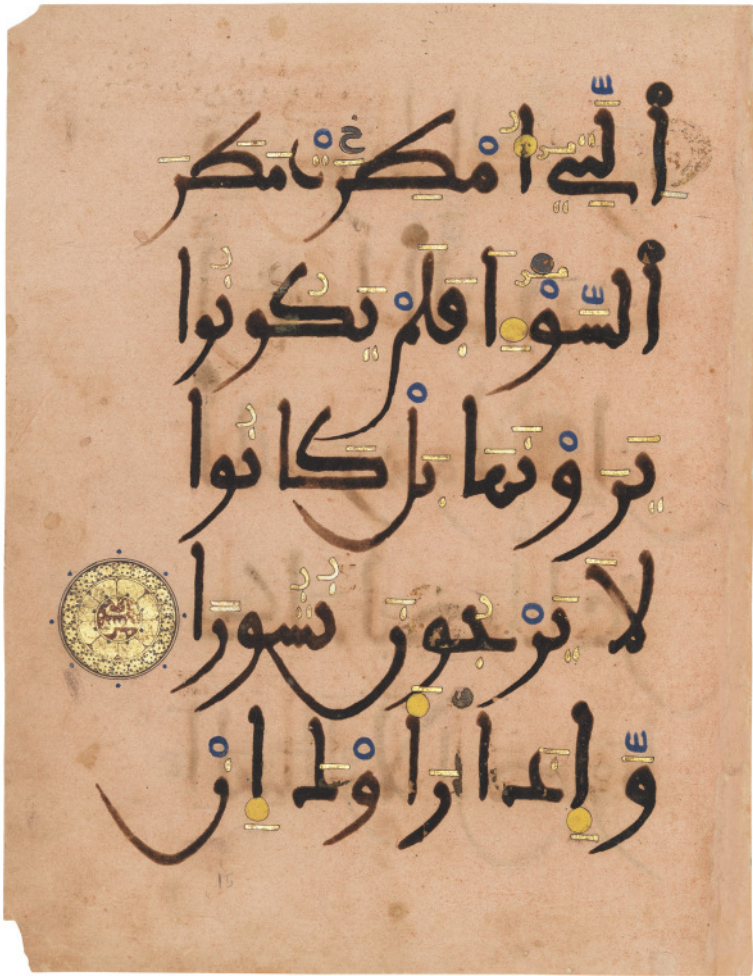 اَلَّتِي أُمْطِرَتْ مَطَرَ
اَلسَّوْءِ أَفَلَمْ يَكُونُوا
يَرَوْنَهَا بَلْ كَانُوا
لَا يَرْجُونَ نُشُورًا
وَّإِذَا رَأَوْكَ إِنْ
15